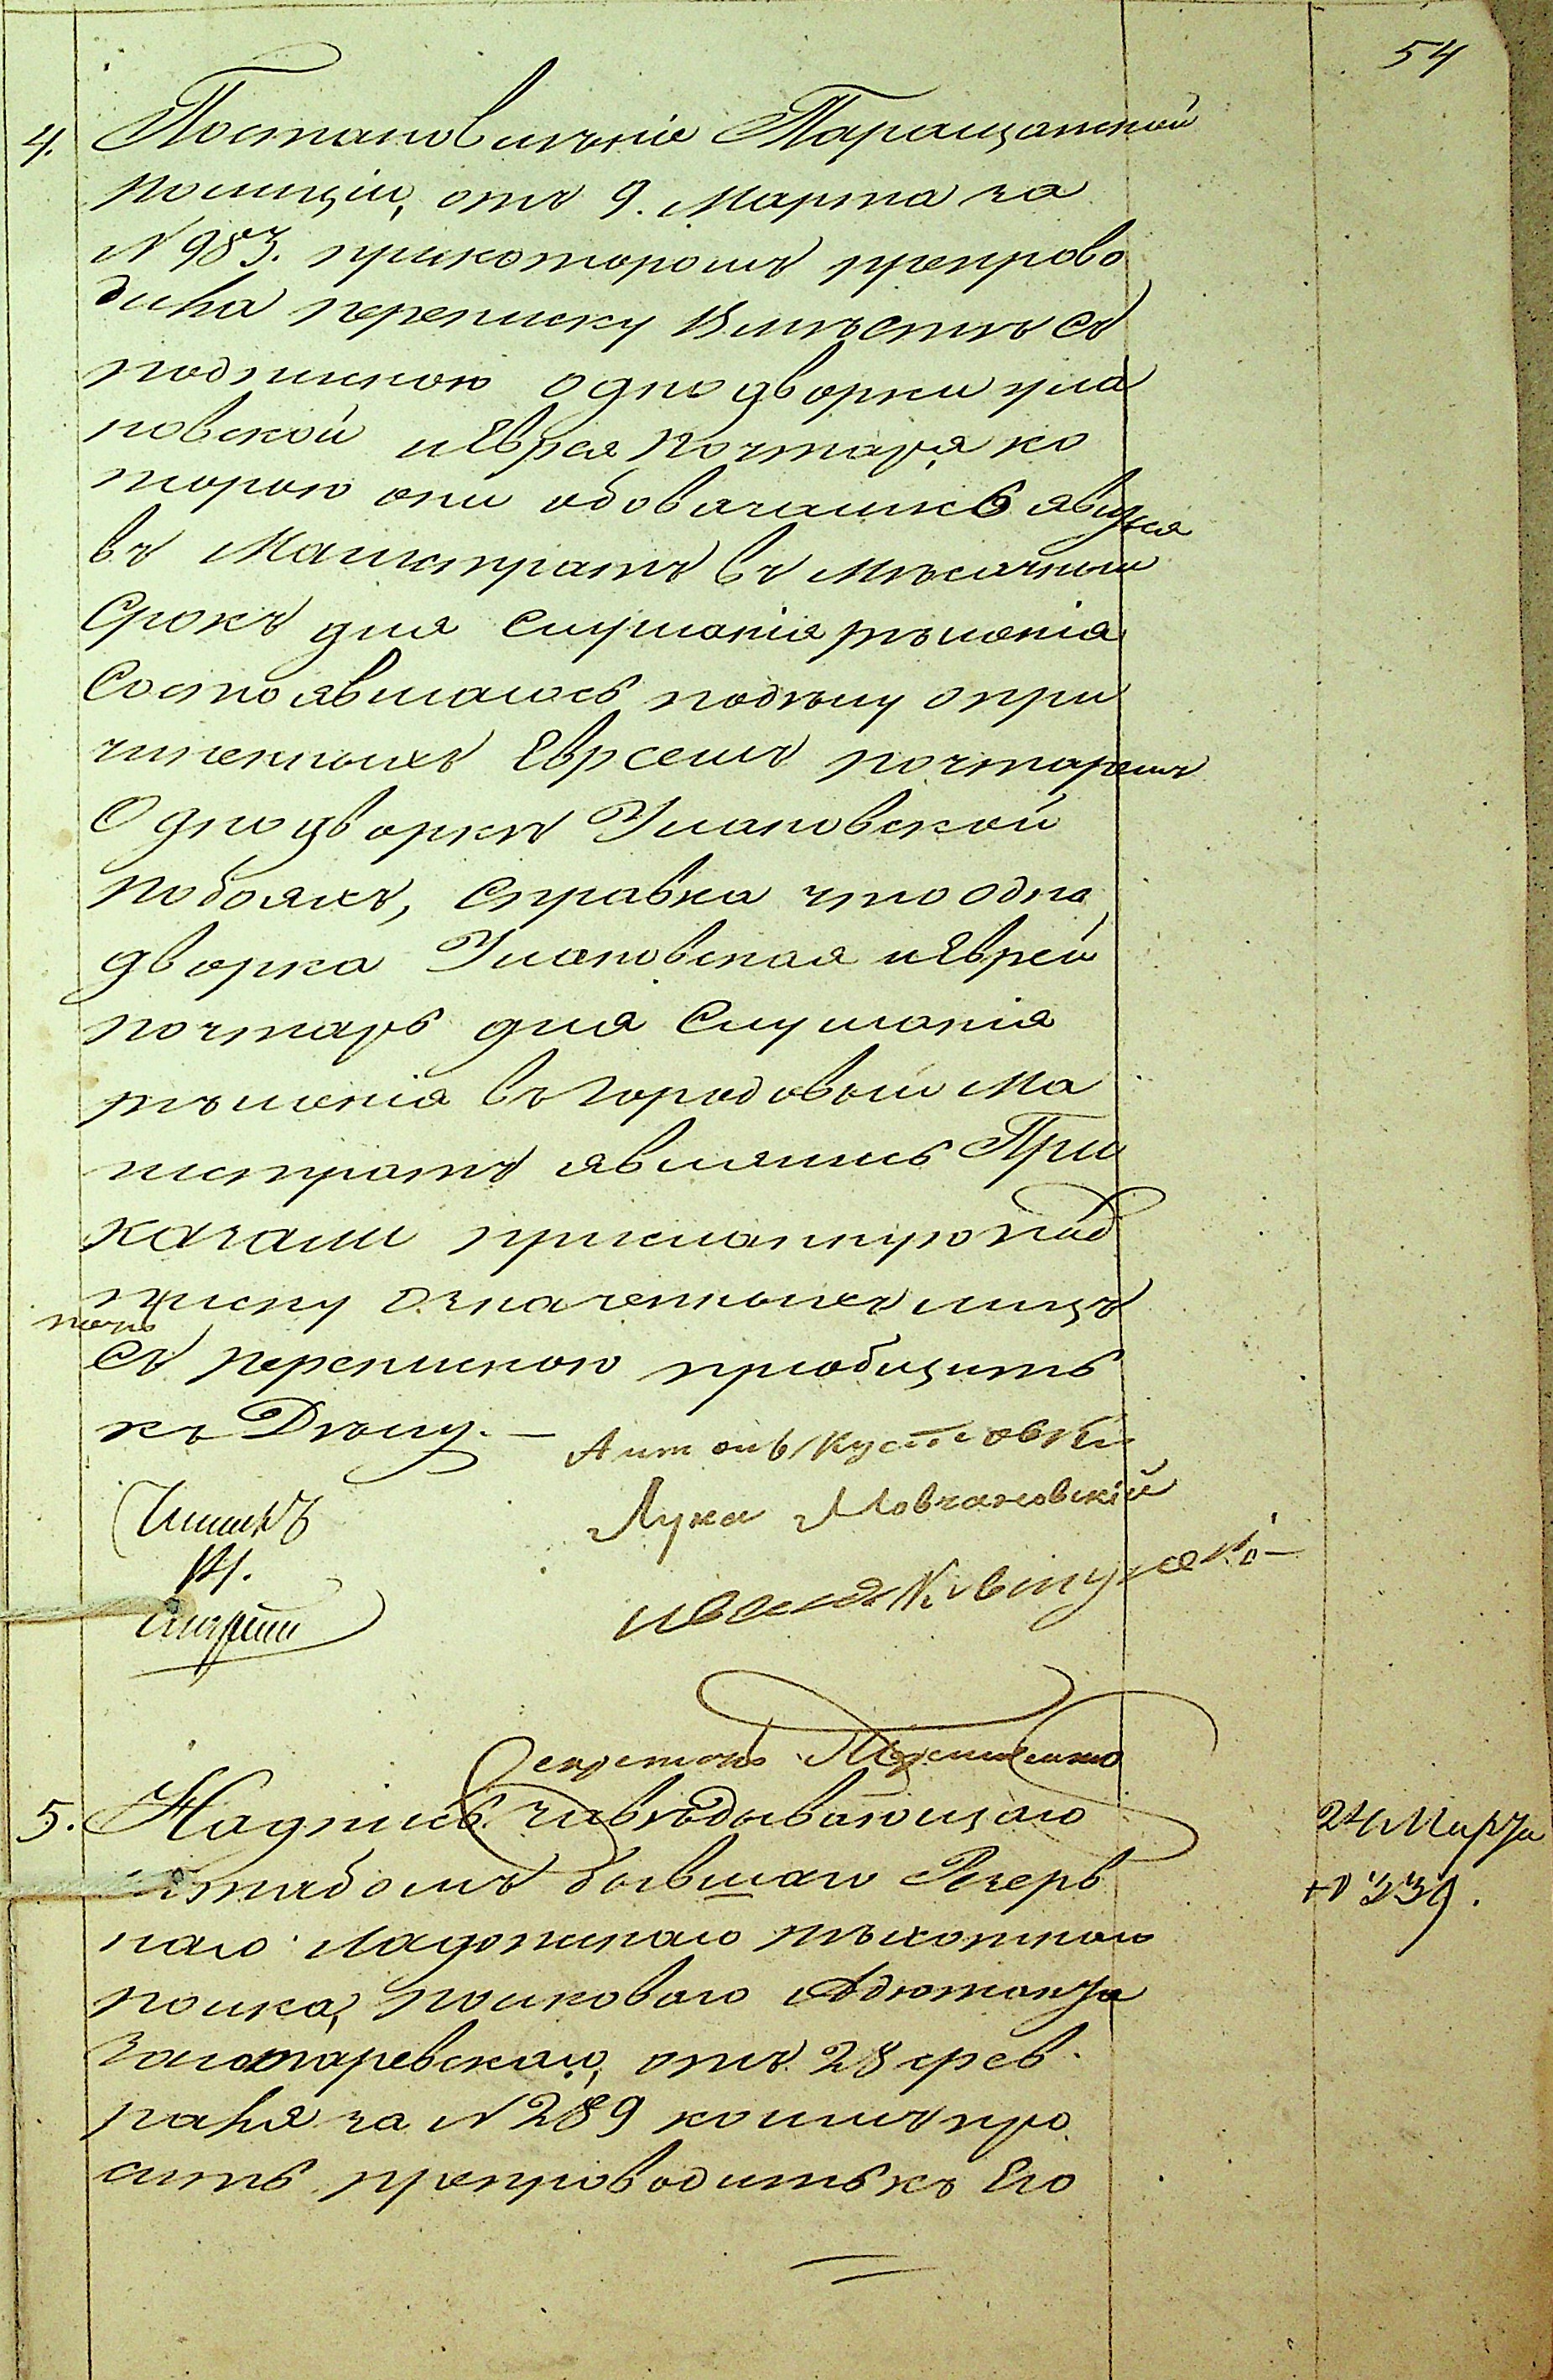 54
4. Постановленіе Таращанской
полиціи, отъ 9. Марта за
№ 983. прикоторомъ препрово
дила переписку вмѣстѣ съ
подпискою однодворки ула
новской иЕврея почтаря ко
торою они обовязались явится
въ Магистратъ въ мѣсячный
срокъ для слушанія рѣшенія
состоявшагось подѣлу опри
чиненныхъ Евреемъ почтаремъ
Однодворкѣ Улановской
побояхъ, справка что одно
дворка Улановская иЕврей
почтарь для слушанія
рѣшенія въ городовый Ма
гистратъ явлились При
казали присланную под
писку означенныхъ лицъ
съ перепискою пріобщить
къ Дѣлу.—
Антонъ
Лука Мовчановскій
Секретарь
5. Надпись завѣдывающаго
штабомъ бывшаго Резерв
наго Ладожскаго пѣхотнаго
полка, полковаго Адютанта
отъ 28 фев
раля за № 289 коимъ про
ситъ препроводить къ Его
24 Марта
№ 339.